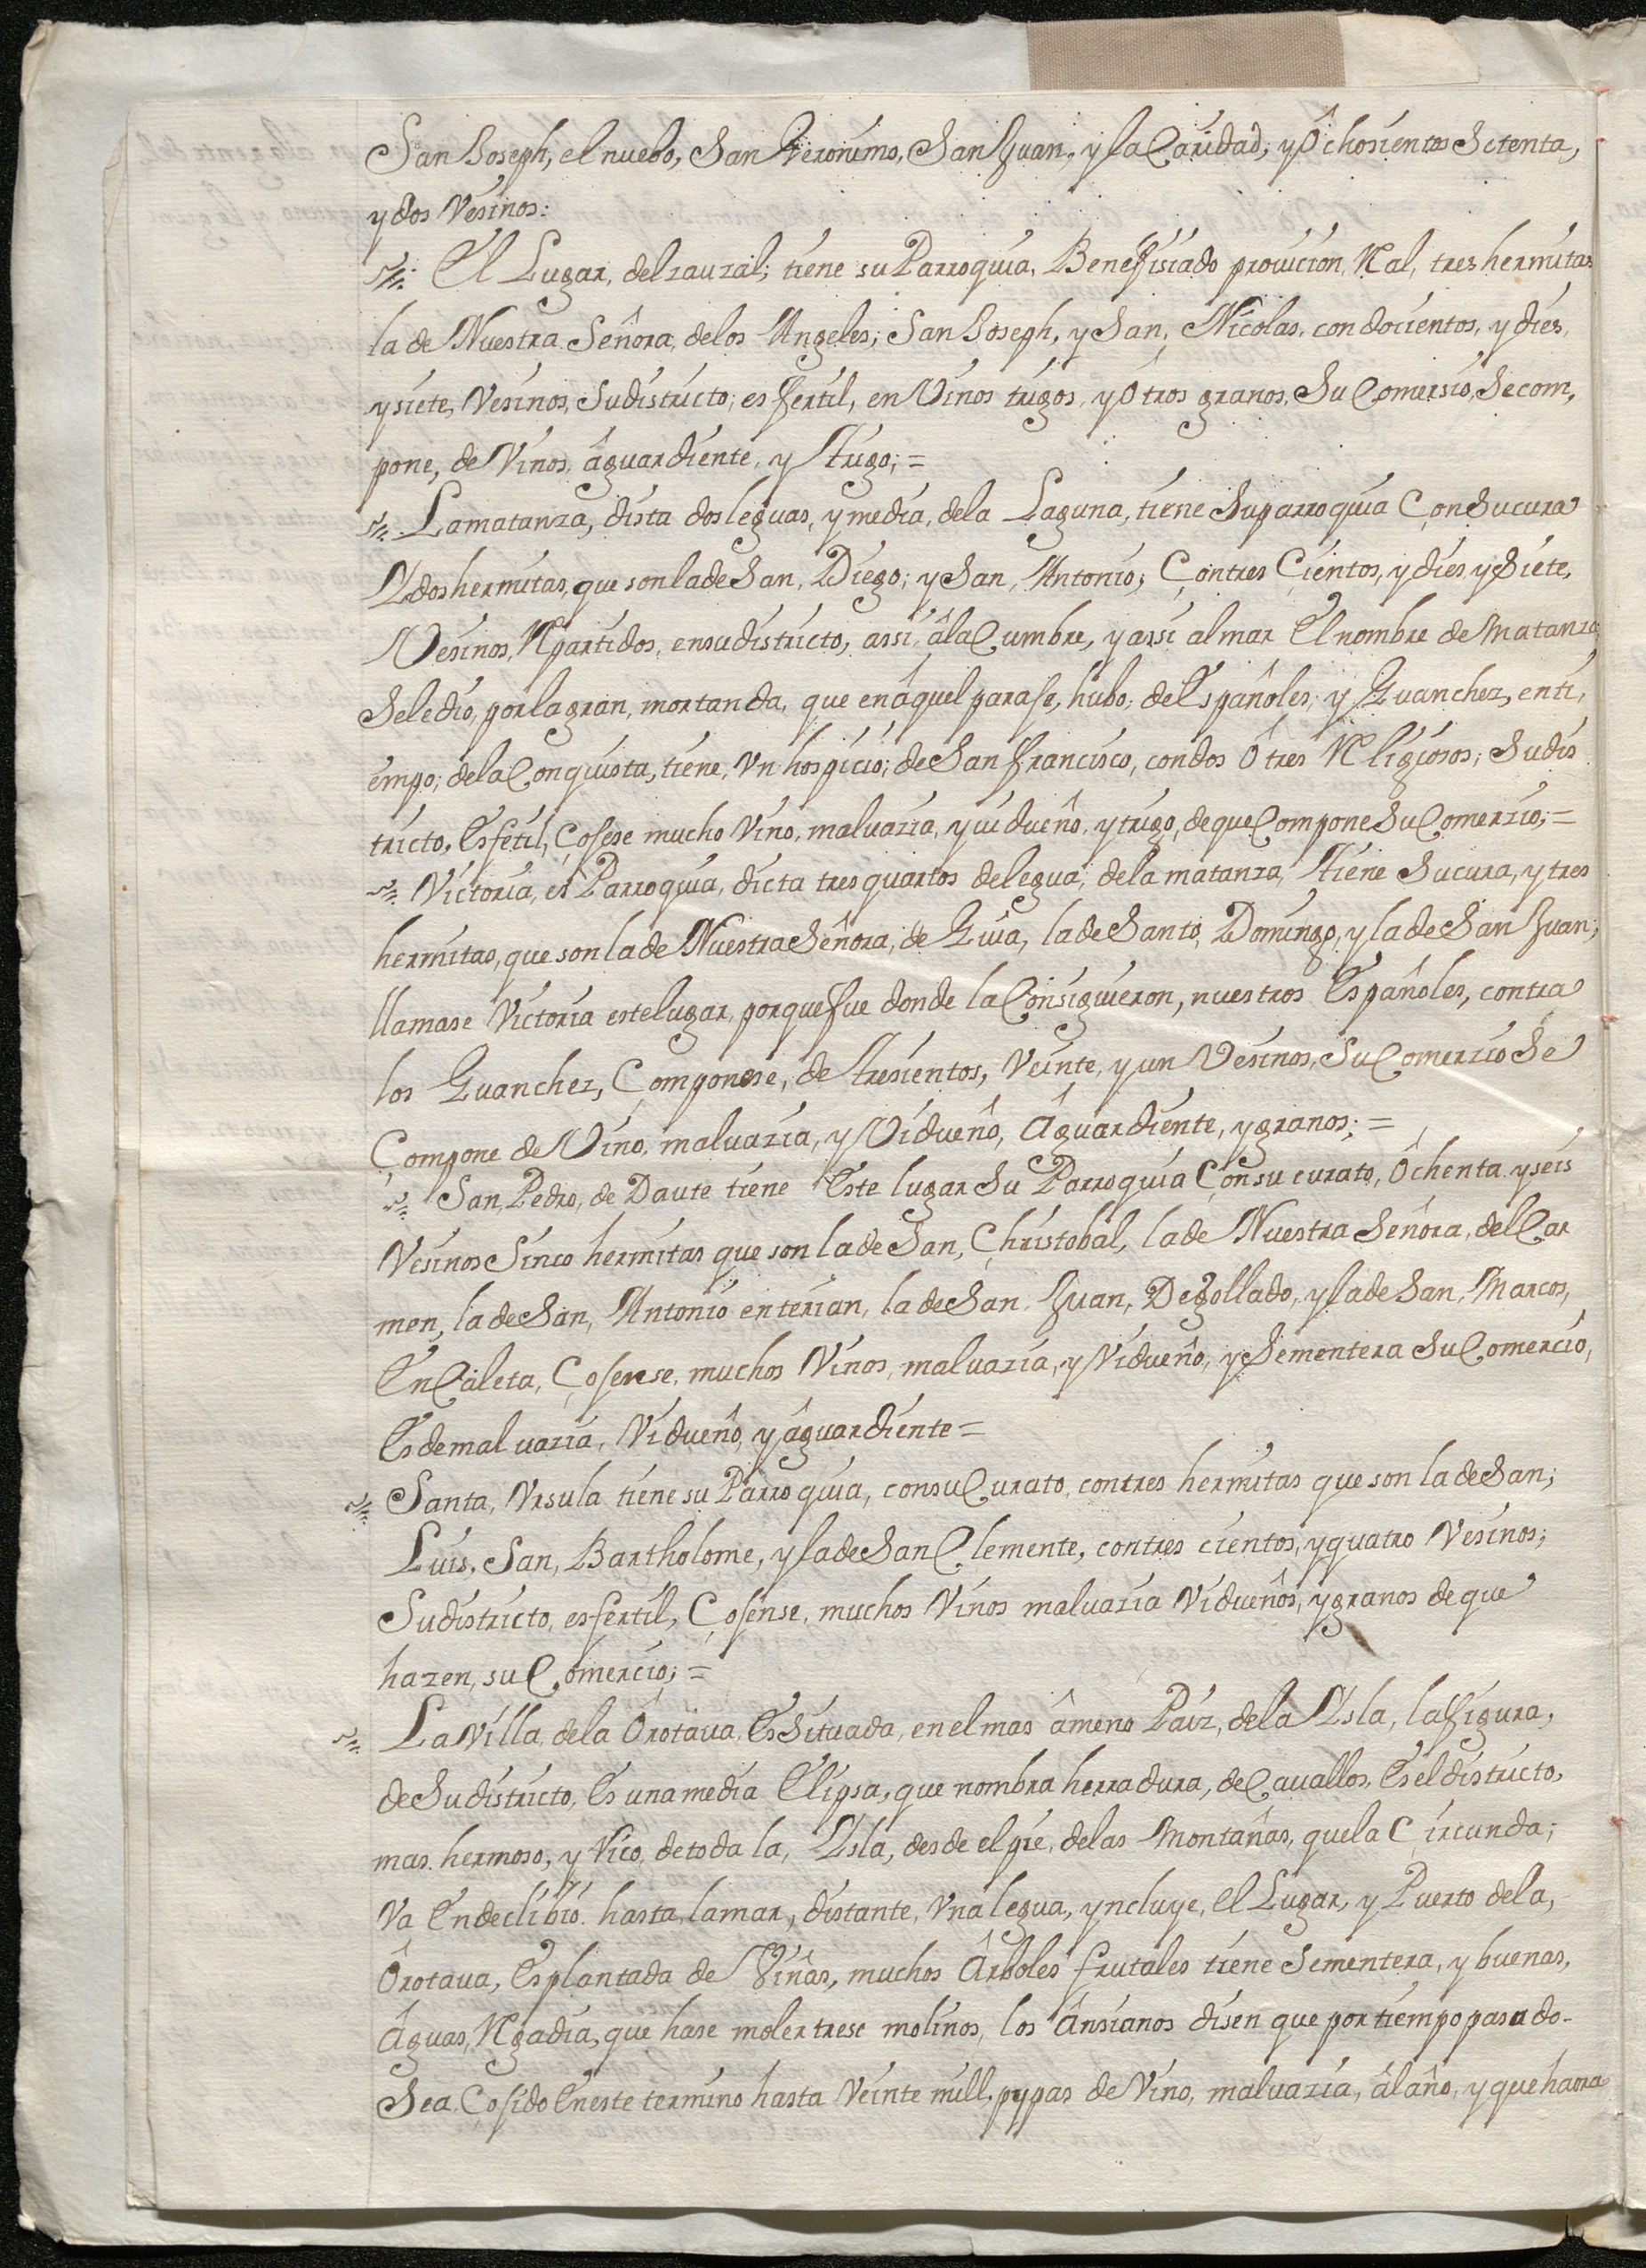 San Joseph, el nuebo, San Geronimo, San Juan, y la Caridad, y Ôchosientos Setenta,
y dos Vesinos:
El Lugar, del zauzal; tiene su Parroquia, Benefisiado provicion, Real, tres hermitas
la de Nuestra Señora, de los Angeles; San Joseph, y San, Nicolas, con docientos, y dies,
y siete, Vesinos, Su districto; es fertil, en Vinos trigos, y Otros granos, Su Comersio, Secom,
pone, de Vinos, âguardiente, y trigo; =
Lamatanza, dista dos leguas, y media, dela Laguna, tiene Suparroquia Con Sucura
Y dos hermitas, que son la de San, Diego; y San, Antonio; Con tres Cientos, y dies y Siete,
Vesinos, Repartidos, ensudistricto, assi, âla Cumbre, y assi al mar El nombre de Matanza,
Seledio, por la gran, mortanda, que en âquel paraje, hubo, de Españoles; y Guanchez, enti,
empo; dela Conquista, tiene, Vn hospicio; de San francisco, con dos Ô tres Religiosos; Sudis
tricto, Es fetil, Cojese mucho Vino, malvazia, y vidueño, y trigo, de que Compone Su Comerzio; =
Victoria, es Parroquia, dicta tres quartos de legua; dela matanza, tiene Sucura, y tres
hermitas, que son la de Nuestra Señora, de Guia, la de Santo, Domingo, y la de San Juan;
llamase Victoria este lugar, porque fue donde la Consiguieron, nuestros Españoles, contra
los Guanchez, Componese, de tresientos, Veinte, y un Vesinos, Su Comerzio Se
Compone de Vino, malvazia, y Vidueño, Âguardiente, y granos; =
San, Pedro, de Daute tiene Este lugar Su Parroquia Con su curato, Ôchenta y seis
Vesinos Sinco hermitas que son la de San, Christobal, la de Nuestra Señora, del Car
men, la de San, Antonio en terian, la de San Juan, Degollado, y la de San, Marcos,
En Caleta, Cojense, muchos Vinos, malvazia, y Vidueño, y Sementera Su Comercio,
Es de malvazia, Vidueño, y âguardiente =
Santa, Vrsula tiene su Parroquia, con su Curato, con tres hermitas que son la de San;
Luis, San, Bartholome, y la de San Clemente, con tres cientos, y quatro Vesinos;
Su districto, es fertil, Cojense, muchos Vinos malvazia Vidueños, y granos de que
hazen, su Comercio; =
La Villa, dela Ôrotaua, Es Situada, en el mas âmeno Paiz, dela Ysla, la figura,
de Su districto, Es una media Elipsa, que nombra herradura, de Cauallos, Es el districto,
mas hermoso, y Rico, de toda la, Ysla, desde el pie, delas Montañas, que la Circunda;
Va En declibio hasta, la mar, distante, Vna legua, yncluye, El Lugar, y Puerto dela,
Ôrotaua, Es plantada de Viñas, muchos Ârboles frutales tiene Sementera, y buenas,
Âguas, Regadia, que hase moler trese molinos, los Ânsianos disen que por tiempo pasado-
Sea Cojido En este termino hasta Veinte mill pypas de Vino, malvazia, âl año, y que haora